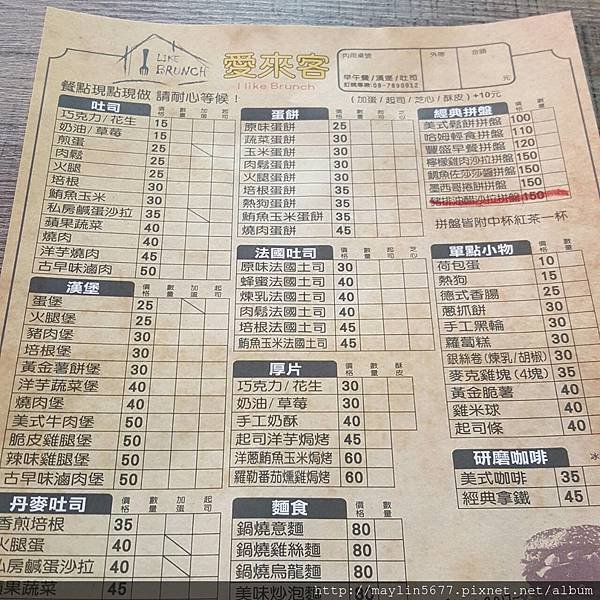 LIKE BRUNCH
愛來客
I like Brunch
內用桌號 外帶 金額
元
早午餐/漢堡/吐司
訂購專線:08-7890912
餐點現點現做 請耐心等候!
(加蛋/起司/芝心/酥皮)+10元
吐司 價格 數量 加蛋 起司
巧克力/花生 15
奶油/草莓 15
煎蛋 25
肉鬆 25
火腿 25
培根 30
鮪魚玉米 30
私房鹹蛋沙拉 35
蘋果蔬菜 40
燒肉 40
洋芋燒肉 45
古早味滷肉 50
漢堡 價格 數量 加蛋 起司
蛋堡 25
火腿堡 25
豬肉堡 30
培根堡 30
黃金薯餅堡 30
洋芋蔬菜堡 40
燒肉堡 40
美式牛肉堡 50
脆皮雞腿堡 50
辣味雞腿堡 50
古早味滷肉堡 50
丹麥吐司 價格 數量 加蛋 起司
香煎培根 35
火腿蛋 40
私房鹹蛋沙拉 40
蘋果蔬菜 45
蛋餅 價格 數量 起司 芝心
原味蛋餅 25
蔬菜蛋餅 30
玉米蛋餅 30
肉鬆蛋餅 30
火腿蛋餅 30
培根蛋餅 30
熱狗蛋餅 30
鮪魚玉米蛋餅 35
燒肉蛋餅 35
法國吐司 價格 數量 起司 芝心
原味法國土司 30
蜂蜜法國土司 40
煉乳法國土司 40
肉鬆法國土司 40
培根法國土司 45
鮪魚玉米法國土司 45
厚片 價格 數量 酥皮
巧克力/花生 30
奶油/草莓 30
手工奶酥 40
起司洋芋焗烤 45
洋蔥鮪魚玉米焗烤 60
羅勒番茄燻雞焗烤 60
麵食 價格 數量
鍋燒意麵 80
鍋燒雞絲麵 80
鍋燒烏龍麵 80
美味炒泡麵 80
經典拼盤 價格 數量
美式鬆餅拼盤 100
哈姆輕食拼盤 110
豐盛早餐拼盤 120
檸檬雞肉沙拉拼盤 150
鯛魚佐莎莎醬拼盤 150
墨西哥捲餅拼盤 150
豬排油醋沙拉拼盤 150
拼盤皆附中杯紅茶一杯
單點小物 價格 數量
荷包蛋 10
熱狗 15
德式香腸 25
蔥抓餅 30
手工黑輪 30
蘿蔔糕 30
銀絲卷(煉乳/胡椒) 30
麥克雞塊(4塊) 35
黃金脆薯 40
雞米球 40
起司條 40
研磨咖啡 冰
美式咖啡 35
經典拿鐵 45
http://maylin5677.pixnet.net/album